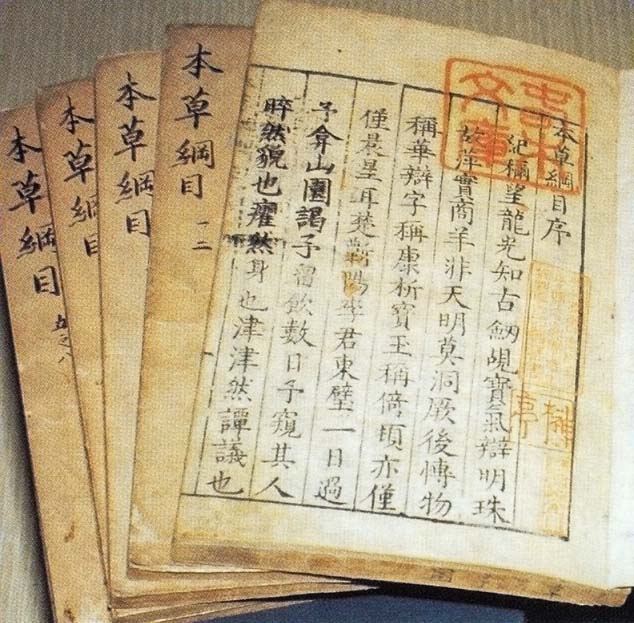 本草綱目序
紀稱望龍光知古劒覘寶氣辯明珠
故萍實商羊非天明莫洞厥後博物
稱華辯字稱康析寶玉稱倚頓亦僅
僅晨星耳楚蘄陽李君東璧一日過
予弇山園謁予留飲數日予窺其人
睟然貌也癯然身也津津然譚議也
文庫
本草綱目 一二
本草綱目
本草綱目
本草綱目 五之八